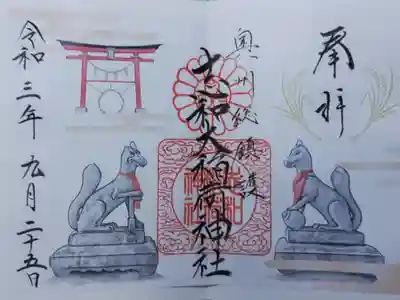 奉拝
奥州総鎮護
志和古稲荷神社
令和三年九月二十五日